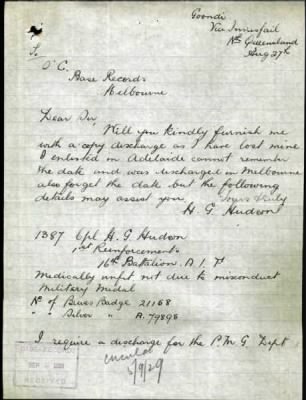 Goondi
Via Innisfail
Nth Queensland
Aug 27th
To
O C.
Base Records
Melbourne
Dear Sir,
Will you kindly furnish me
with a copy discharge as I have lost mine
I enlisted in Adelaide cannot remember
the date and was discharged in Melbourne
also forget the date but the following
details may assist you. Yours truly
H. G. Hudson
1387 Cpl H. G. Hudson
1st Reinforcements
16th Battalion A. I. F.
Medically unfit not due to misconduct
Military Medal
No of Blues Badge 21168
" " Silver " A. 79898
I require a discharge for the P. M. G. Dept
5/9/29
RECEIVED